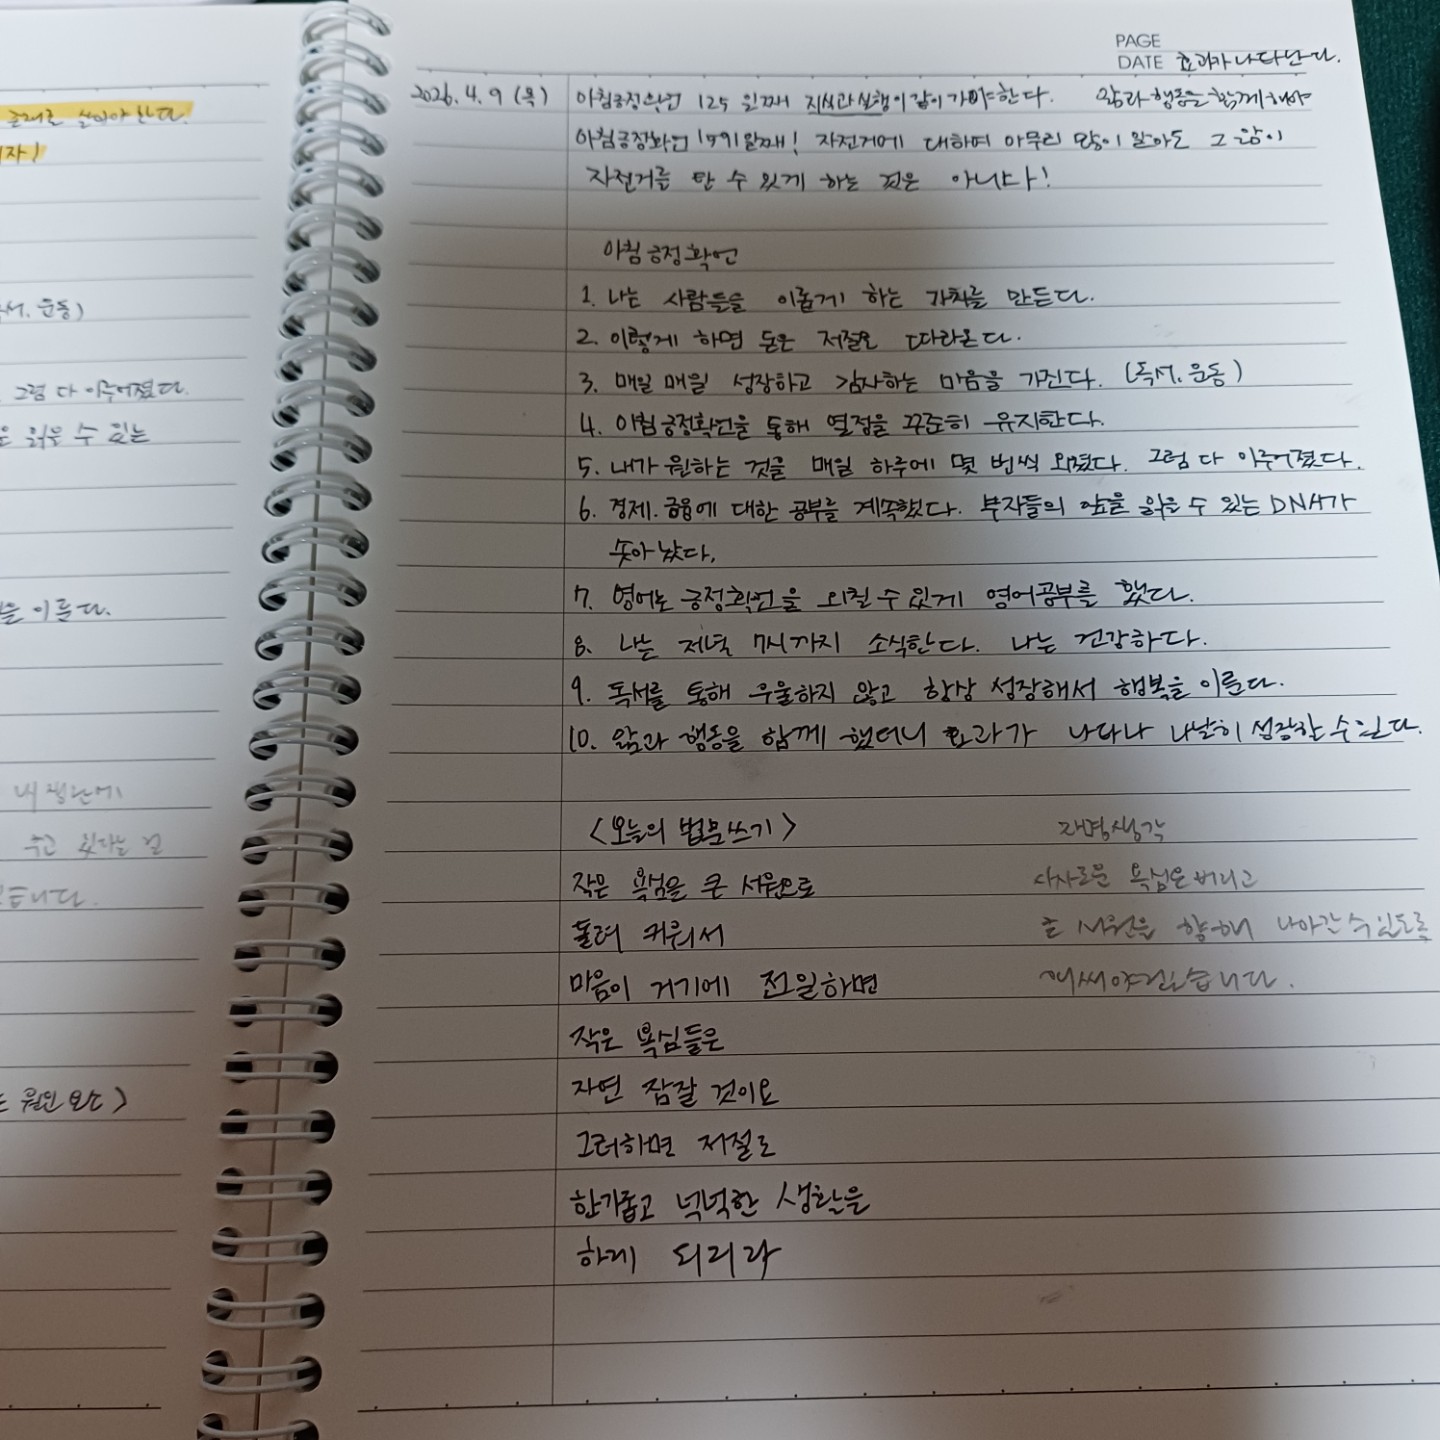 PAGE
DATE 효과가 나타난다.
2026. 4. 9 (목) 아침긍정확언 125일째 지식과 실행이 같이 가야한다. 앎과 행동을 함께 해야
아침긍정확언 1991일째! 자전거에 대하여 아무리 많이 알아도 그 앎이
자전거를 탄 수 있게 하는 것은 아니다!
아침 긍정확언
1. 나는 사람들을 이롭게 하는 가치를 만든다.
2. 이렇게 하면 돈은 저절로 따라온다.
3. 매일 매일 성장하고 감사하는 마음을 가진다. (독서, 운동)
4. 아침 긍정확언을 통해 열정을 꾸준히 유지한다.
5. 내가 원하는 것을 매일 하루에 몇 번씩 외쳤다. 그럼 다 이루어졌다.
6. 경제.금융에 대한 공부를 계속했다. 부자들의 앞을 읽을 수 있는 DNA가
솟아났다.
7. 영어로 긍정확언을 외칠 수 있게 영어공부를 했다.
8. 나는 저녁 7시까지 소식한다. 나는 건강하다.
9. 독서를 통해 우울하지 않고 항상 성장해서 행복을 이룬다.
10. 앎과 행동을 함께 했더니 효과가 나타나 나날히 성장할 수 있다.
<오늘의 법문쓰기> 자명생각
작은 욕심을 큰 서원으로 사사로운 욕심은 버리고
돌려 키워서 큰 서원을 향해 나아갈 수 있도록
마음이 거기에 전일하면 애써야겠습니다.
작은 욕심들은
자연 잠잘 것이요
그러하면 저절로
한가롭고 넉넉한 생활을
하게 되리라
살아야 한다.
자!
서. 운동)
그럼 다 이루어졌다.
읽을 수 있는
을 이룬다.
내 생난에
주고 있다는 걸
습니다.